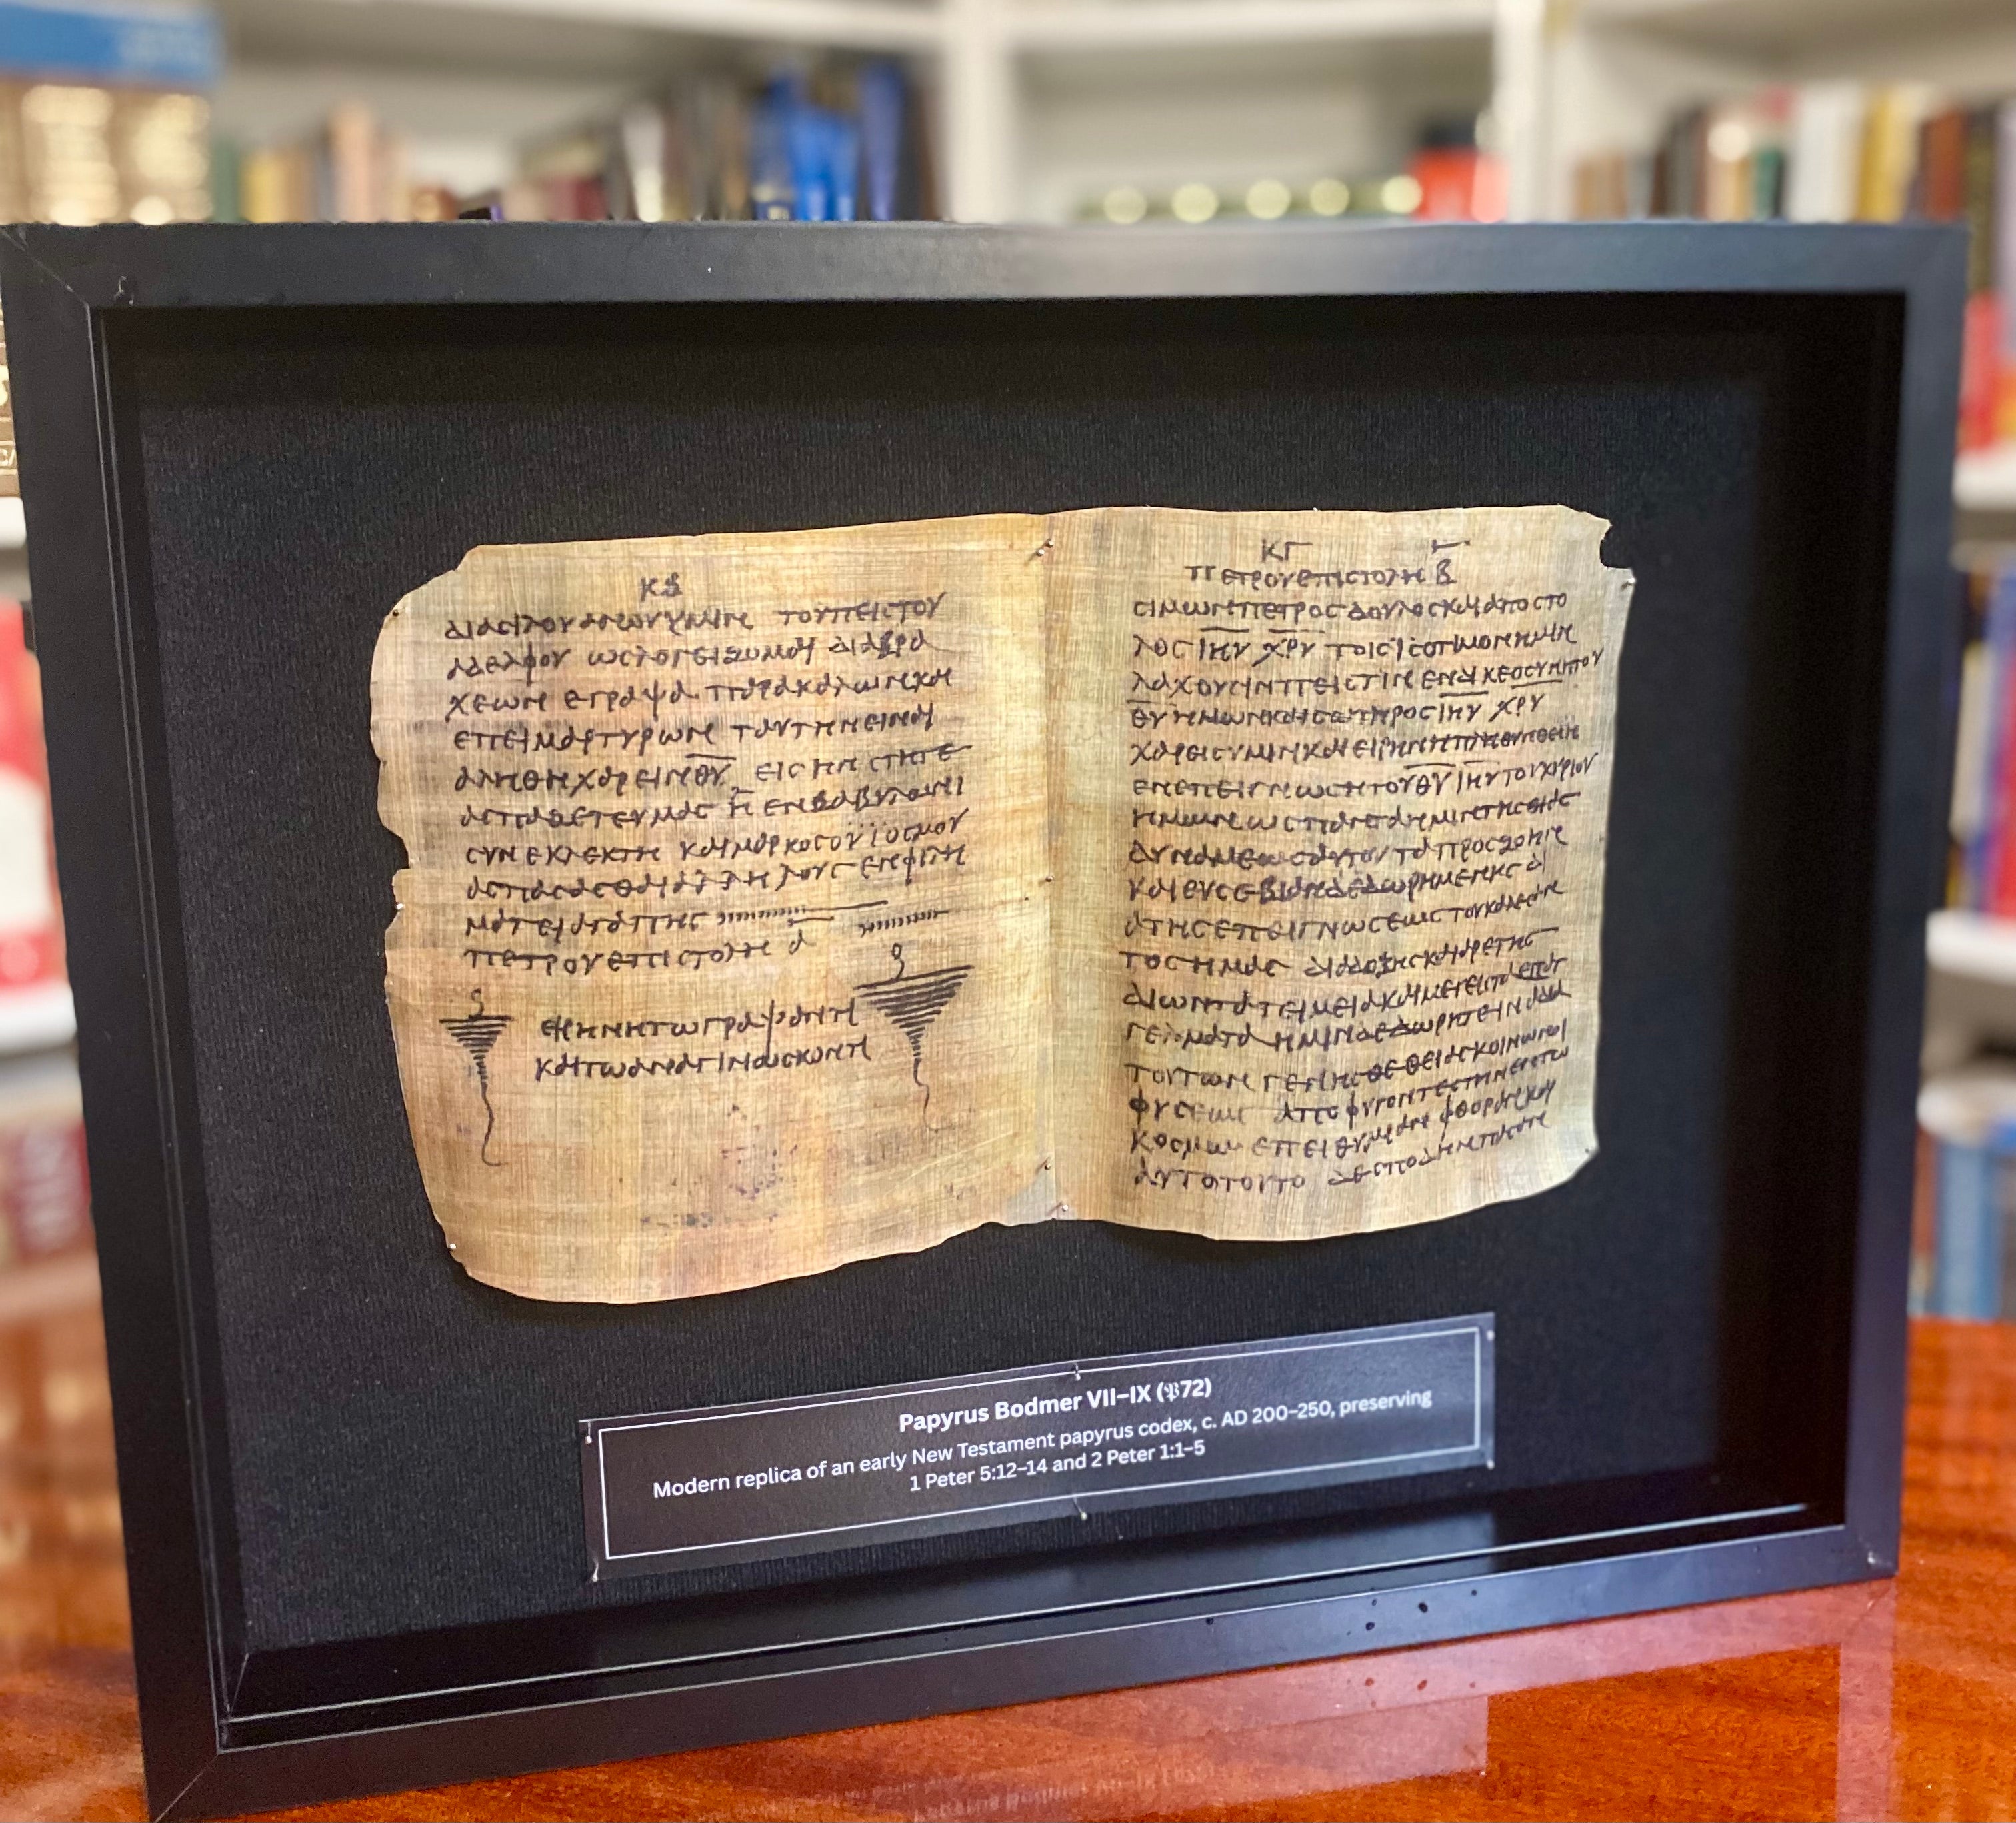 ΚΒ
ΔΙΑΣΙΛΟΥΑΝΟΥΥΜΙΝ ΤΟΥΠΕΙΣΤΟΥ
ΑΔΕΛΦΟΥ ΩΣΛΟΓΕΙΖΟΜΑΙ ΔΙΑΒΡΑ
ΧΕΩΝ ΕΓΡΑΨΑ ΠΑΡΑΚΑΛΩΝΚΑΙ
ΕΠΕΙΜΑΡΤΥΡΩΝ ΤΑΥΤΗΝΕΙΝΑΙ
ΑΛΗΘΗΧΑΡΕΙΝΘΥ ΕΙΣ ΗΝ ΣΤΗΤΕ
ΑΣΠΑΖΕΤΕΥΜΑΣ Η ΕΝΒΑΒΥΛΩΝΙ
ΣΥΝΕΚΛΕΚΤΗ ΚΑΙΜΑΡΚΟΣΟΥΪΟΣΜΟΥ
ΑΣΠΑΣΑΣΘΑΙΑΛΛΗΛΟΥΣ ΕΝΦΙΛΗ
ΜΑΤΕΙΑΓΑΠΗΣ
ΠΕΤΡΟΥΕΠΙΣΤΟΛΗ Α
ΕΙΡΗΝΗΤΩΓΡΑΨΑΝΤΙ
ΚΑΙΤΩΑΝΑΓΙΝΩΣΚΟΝΤΙ
ΚΓ
ΠΕΤΡΟΥΕΠΙΣΤΟΛΗ Β
ΣΙΜΩΝΠΕΤΡΟΣΔΟΥΛΟΣΚΑΙΑΠΟΣΤΟ
ΛΟΣ ΙΗΥ ΧΡΥ ΤΟΙΣ ΙΣΟΤΙΜΟΝΗΜΙΝ
ΛΑΧΟΥΣΙΝΠΕΙΣΤΙΝ ΕΝΔΙΚΕΟΣΥΝΗΤΟΥ
ΘΥ ΗΜΩΝΚΑΙΣΩΤΗΡΟΣ ΙΗΥ ΧΡΥ
ΧΑΡΕΙΣΥΜΙΝΚΑΙΕΙΡΗΝΗΠΛΗΘΥΝΘΕΙΗ
ΕΝΕΠΕΙΓΝΩΣΗΤΟΥΘΥ ΙΗΥΤΟΥΚΥΡΙΟΥ
ΗΜΩΝ ΩΣΠΑΝΤΑΗΜΙΝΤΗΣΘΙΑΣ
ΔΥΝΑΜΕΩΣΑΥΤΟΥΤΑΠΡΟΣΖΩΗΝ
ΚΑΙΕΥΣΕΒΙΑΝΔΕΔΩΡΗΜΕΝΗΣ ΔΙ
ΑΤΗΣΕΠΕΙΓΝΩΣΕΩΣΤΟΥΚΑΛΕΣΑΝ
ΤΟΣΗΜΑΣ ΔΙΑΔΟΞΗΣΚΑΙΑΡΕΤΗΣ
ΔΙΩΝΤΑΤΕΙΜΕΙΑΚΑΙΜΕΓΕΙΣΤΑΕΠΑΓ
ΓΕΛΜΑΤΑ ΗΜΙΝΔΕΔΩΡΗΤΕΙΝΑΔΙΑ
ΤΟΥΤΩΝ ΓΕΝΗΣΘΕΘΕΙΑΣΚΟΙΝΩΝΟΙ
ΦΥΣΕΩΣ ΑΠΟΦΥΓΟΝΤΕΣΤΗΝΕΝΤΩ
ΚΟΣΜΩ ΕΠΕΙΘΥΜΙΑΝ ΦΘΟΡΑΝΚΑΙ
ΑΥΤΟΤΟΥΤΟ ΔΕΣΠΟΔΗΝΠΑΣΑΝ
Papyrus Bodmer VII–IX (𝔓72)
Modern replica of an early New Testament papyrus codex, c. AD 200–250, preserving
1 Peter 5:12–14 and 2 Peter 1:1–5